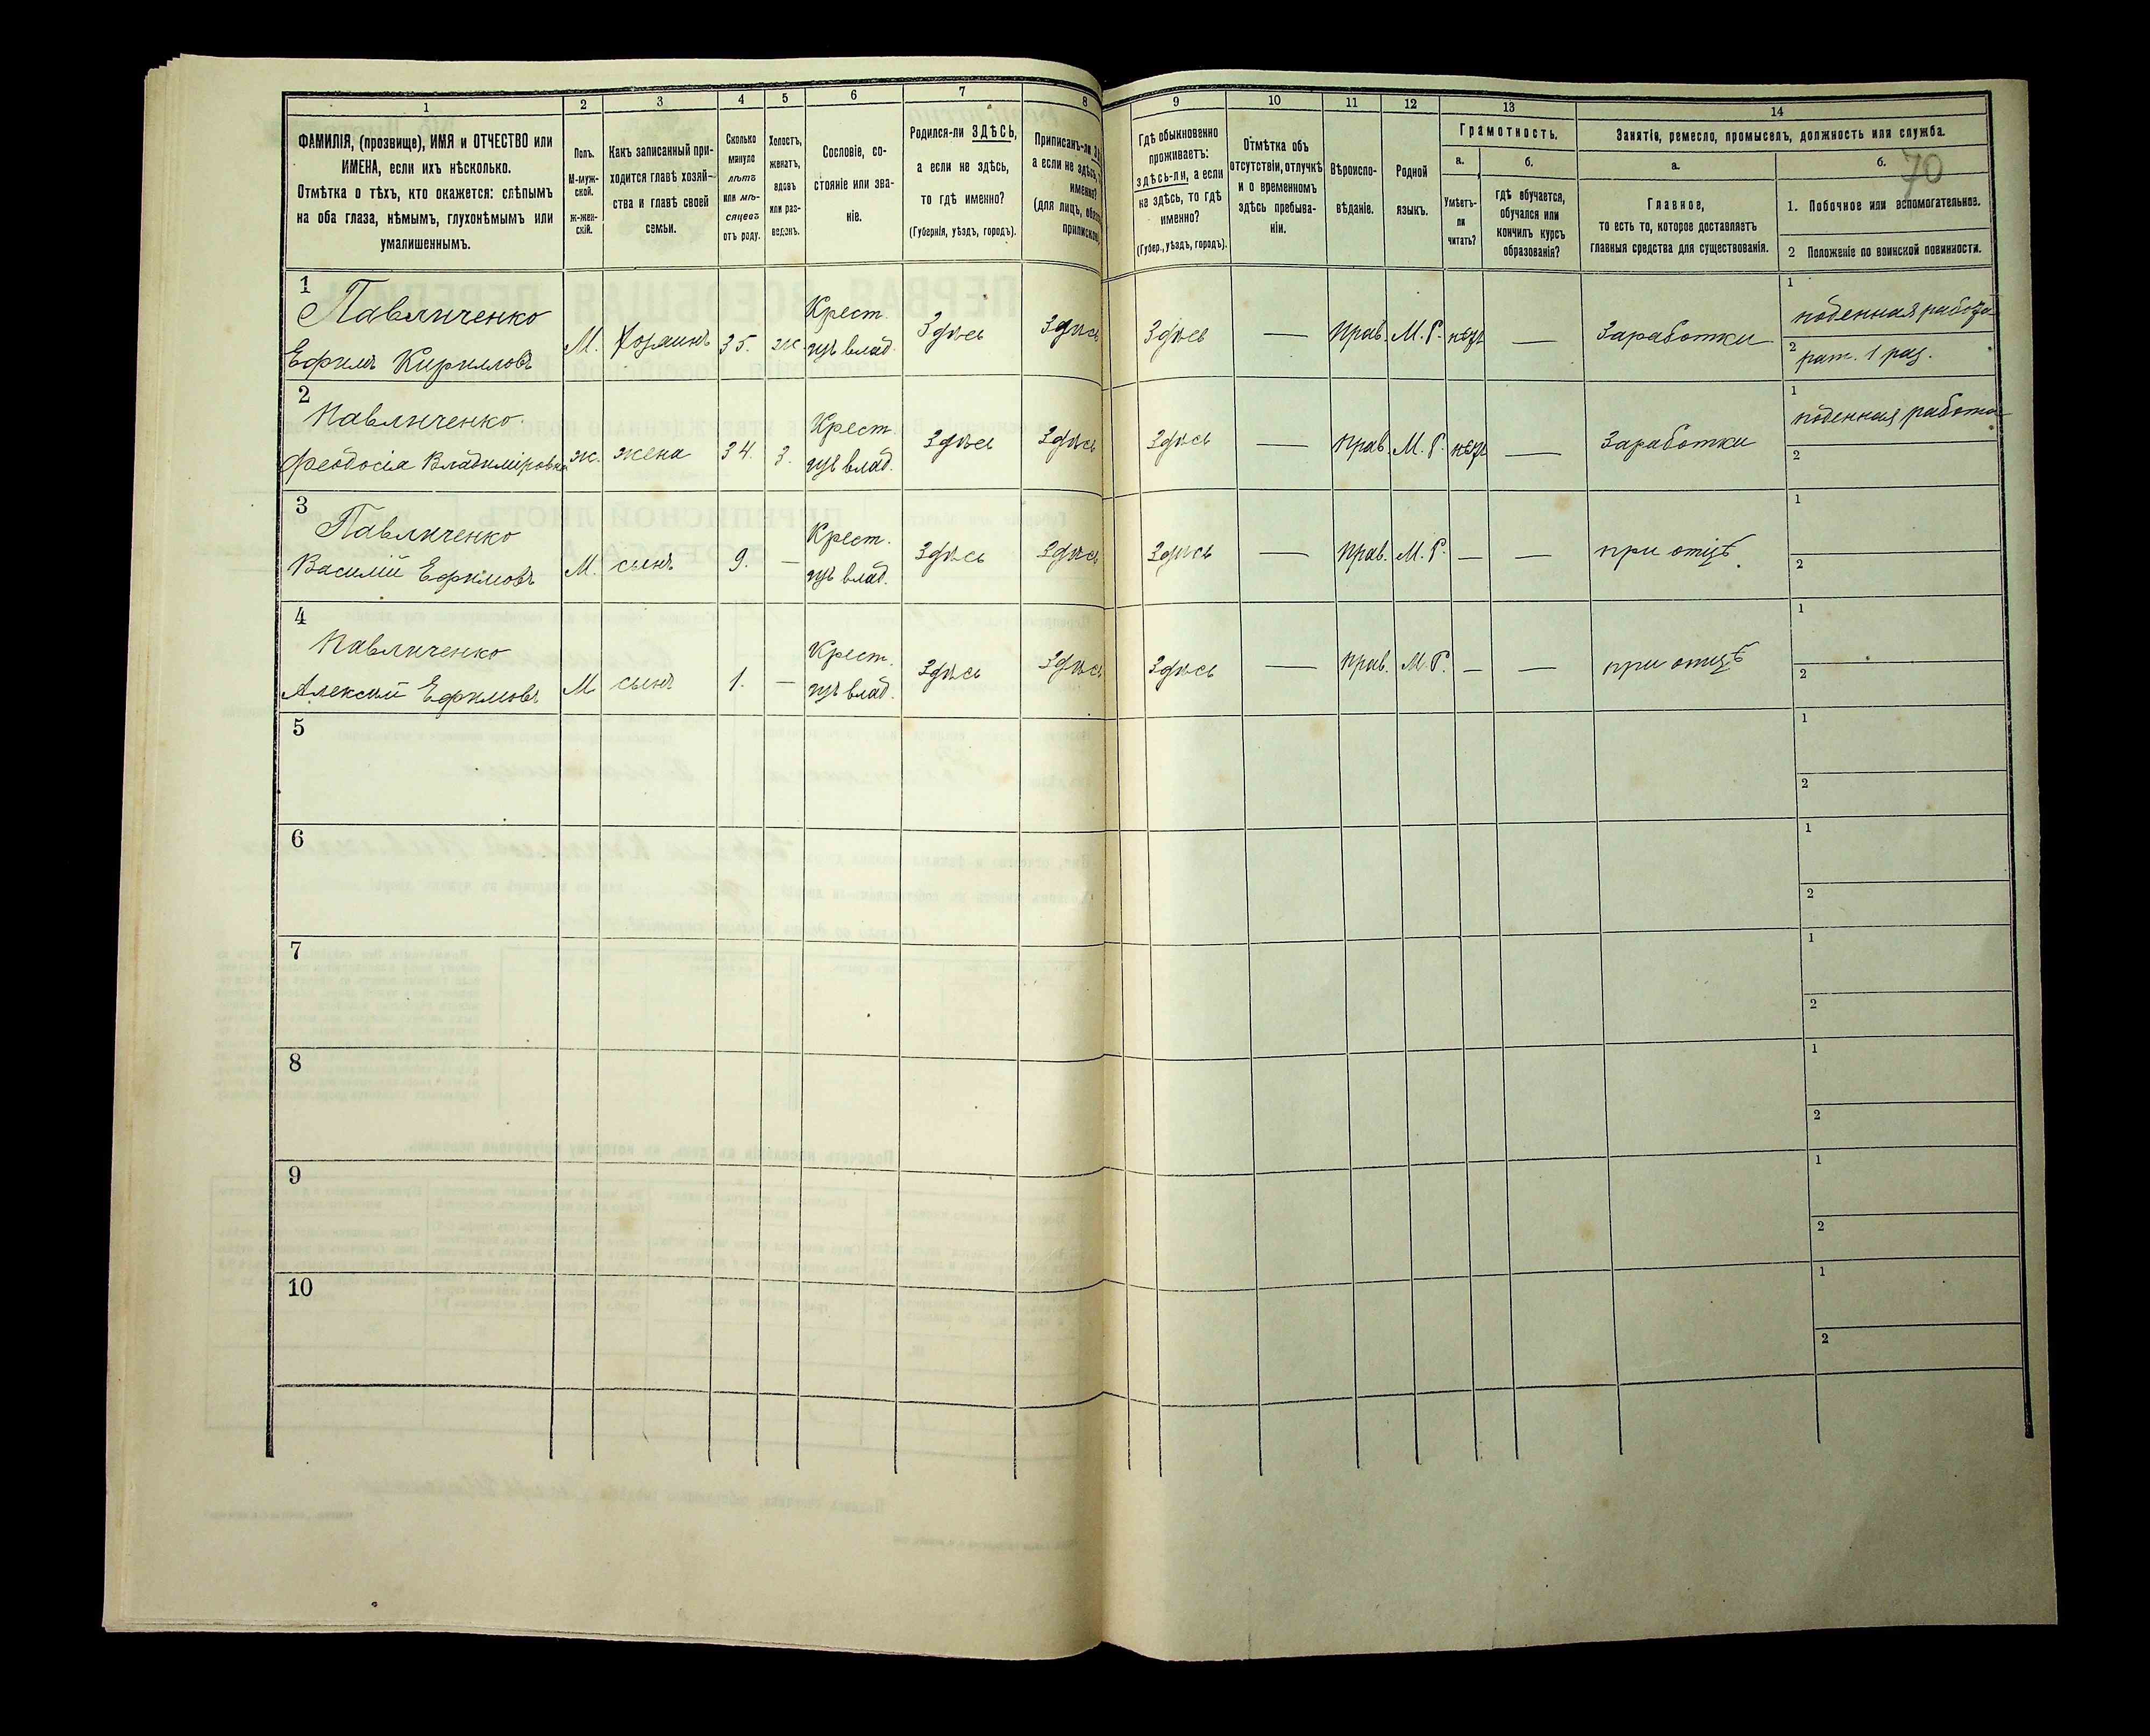 1 2 3 4 5 6 7 8 9 10 11 12 13 14
ФАМИЛІЯ, (прозвище), ИМЯ и ОТЧЕСТВО или
ИМЕНА, если ихъ нѣсколько.
Отмѣтка о тѣхъ, кто окажется: слѣпымъ
на оба глаза, нѣмымъ, глухонѣмымъ или
умалишеннымъ.
Полъ.
М-муж-
ской.
ж-жен-
скій.
Какъ записанный при-
ходится главѣ хозяй-
ства и главѣ своей
семьи.
Сколько
минуло
лѣтъ
или мѣ-
сяцевъ
отъ роду.
Холостъ,
женатъ,
вдовъ
или раз-
веденъ.
Сословіе, со-
стояніе или зва-
ніе.
Родился-ли ЗДѢСЬ,
а если не здѣсь,
то гдѣ именно?
(Губернія, уѣздъ, городъ).
Приписанъ-ли
а если не здѣсь,
именно?
(для лицъ,
Гдѣ обыкновенно
проживаетъ:
здѣсь-ли, а если
не здѣсь, то гдѣ
именно?
(Губер., уѣздъ, городъ).
Отмѣтка объ
отсутствіи, отлучкѣ
и о временномъ
здѣсь пребыва-
ніи.
Вѣроиспо-
вѣданіе.
Родной
языкъ.
Грамотность.
а. б.
Умѣетъ-
ли
читать?
гдѣ обучается,
обучался или
кончилъ курсъ
образованія?
Занятія, ремесло, промыселъ, должность или служба.
а. б. 70
Главное,
то есть то, которое доставляетъ
главныя средства для существованія.
1. Побочное или вспомогательное.
2 Положеніе по воинской повинности.
1
Павличенко
Ефимъ Кирилловъ
М. Хозяинъ 35. ж
Крест.
изъ влад.
Здѣсь Здѣсь Здѣсь — прав. М. Р. нѣтъ — Заработки
1 поденная работа
2 рат. 1 раз.
2
Павличенко
Феодосія Владиміровна
ж. жена 34. з.
Крест.
изъ влад.
Здѣсь Здѣсь Здѣсь — прав. М. Р. нѣтъ — Заработки
1 поденная работа
2
3
Павличенко
Василій Ефимовъ
М. сынъ 9. —
Крест.
изъ влад.
Здѣсь Здѣсь Здѣсь — прав. М. Р. — — при отцѣ
1
2
4
Павличенко
Алексѣй Ефимовъ
М сынъ 1. —
Крест.
изъ влад.
Здѣсь Здѣсь Здѣсь — прав. М. Р. — — при отцѣ
1
2
5
1
2
6
1
2
7
1
2
8
1
2
9
1
2
10
1
2